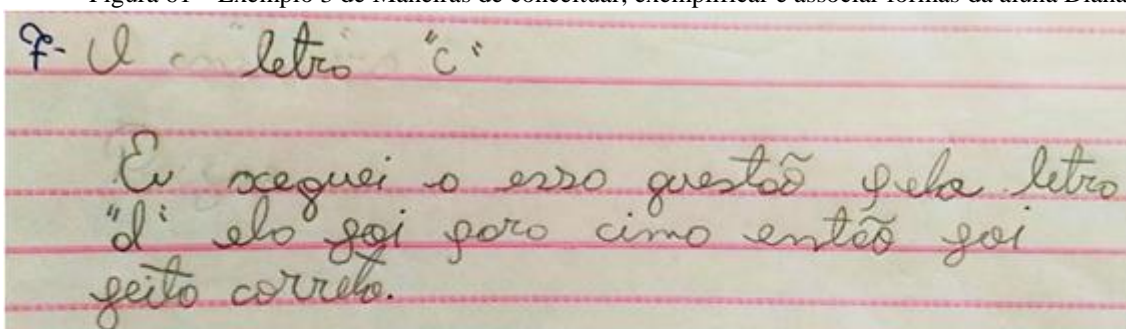 Figura 61 – Exemplo 3 de Maneiras de conceituar, exemplificar e associar formas da aluna Diana
7- A letra "c"
Eu xeguei a essa questão pela letra
"d" ela foi para cima então foi
feito correto.